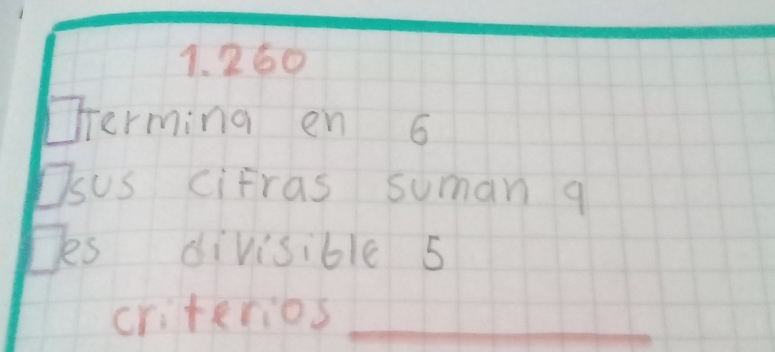 1.260
termina en 6
sus cifras suman 9
es divisible 5
criterios